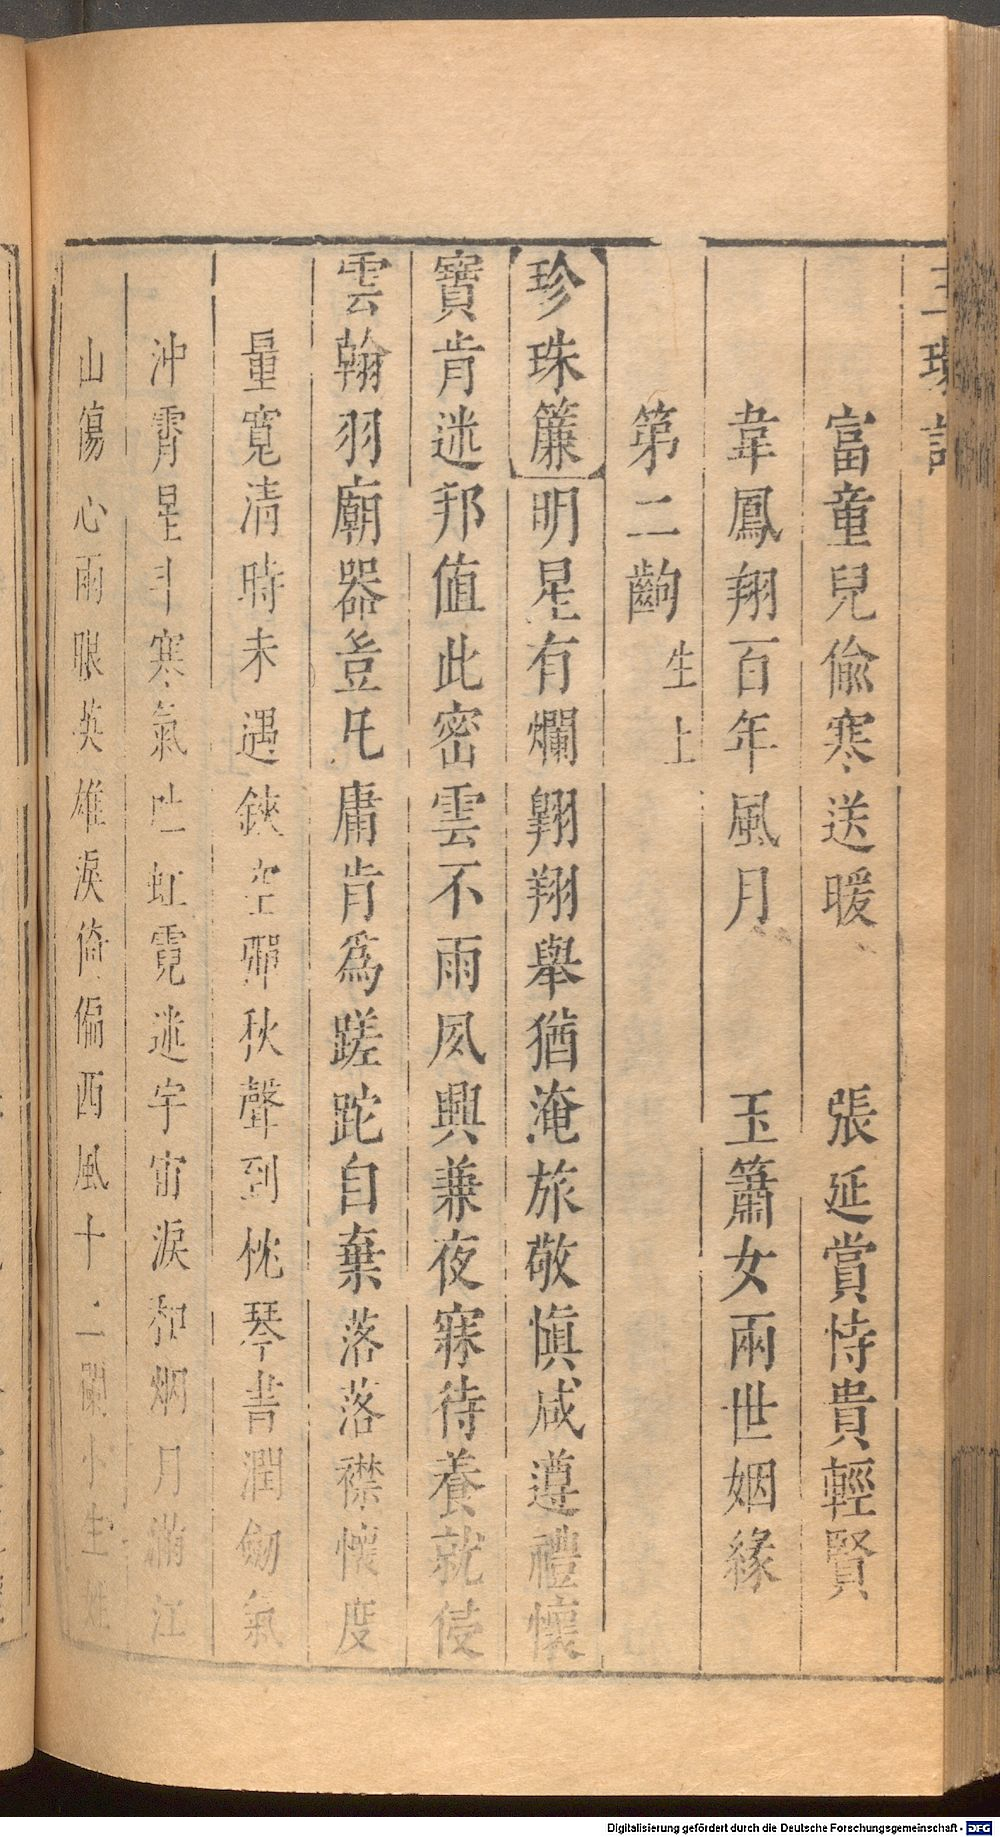 玉環記
富童兒偸寒送暖　張延賞恃貴輕賢
韋鳳翔百年風月　玉簫女兩世姻緣
第二齣
生上
珍珠簾明星有爛翺翔舉猶淹旅敬愼咸遵禮懷
寶肯迷邦值此密雲不雨夙興兼夜寐待養就侵
雲翰羽廟器豈凡庸肯爲蹉跎自棄落落襟懷度
量寬淸時未遇鋏空彈秋聲到枕琴書潤劒氣
沖霄星斗寒氣吐虹霓迷宇宙淚和烟月滿江
山傷心雨眼英雄淚倚偏西風十二闌小生姓
Digitalisierung gefördert durch die Deutsche Forschungsgemeinschaft - DFG